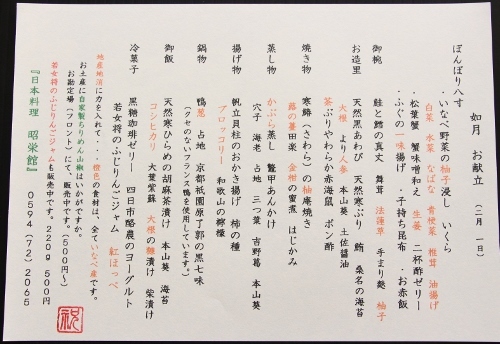 如月　お献立　（二月　一日）
ぼんぼり八寸
・いなべ野菜の柚子浸し　いくら
白菜　水菜　なばな　青梗菜　椎茸　油揚げ
・松葉蟹　蟹味噌和え　生姜　二杯酢ゼリー
・ふぐの一味揚げ　・子持ち昆布　・お赤飯
御椀　鮭と鱈の真丈　舞茸　法蓮草　手まり麩　柚子
お造里　天然黒あわび　天然寒ぶり　鮪　桑名の海苔
大根　より人参　本山葵　土佐醤油
茶ぶりやわらか赤海鼠　ポン酢
焼き物　寒鰆（さわら）の柚庵焼き
蕗の薹田楽　金柑の蜜煮　はじかみ
蒸し物　かぶら蒸し　鼈甲あんかけ
穴子　海老　占地　三つ葉　吉野葛　本山葵
揚げ物　帆立貝柱のおかき揚げ　柿の種
ブロッコリー　和歌山の檸檬
鍋物　鴨葱　占地　京都祇園原了郭の黒七味
（クセのないフランス鴨を使用しています。）
御飯　天然寒ひらめの胡麻茶漬け　本山葵　海苔
コシヒカリ　大葉紫蘇　大根の麹漬け　柴漬け
冷菓子　黒糖珈琲ゼリー　四日市酪農のヨーグルト
若女将のふじりんごジャム　紅ほっぺ
地産地消に力を入れて・・・橙色の食材は、全ていなべ産です。
お土産に自家製ちりめん山椒はいかがですか。
お勘定場（フロント）にて、販売中です。（５００円～）
若女将のふじりんごジャムも販売中です。２２０ｇ　５００円
『日本料理　昭栄館』　０５９４（７２）２０６５
祝